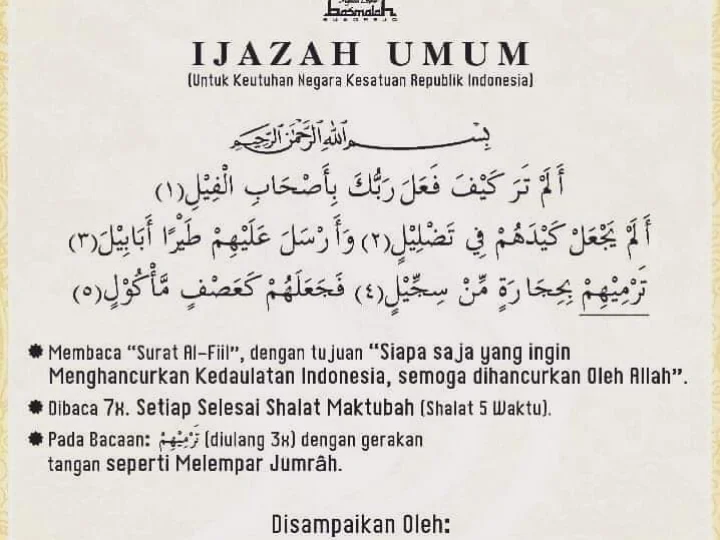 basmalah
SUKOREJO
IJAZAH UMUM
(Untuk Keutuhan Negara Kesatuan Republik Indonesia)
بِسْمِ اللهِ الرَّحْمٰنِ الرَّحِيْمِ
أَلَمْ تَرَ كَيْفَ فَعَلَ رَبُّكَ بِأَصْحَابِ الْفِيْلِ(١)
أَلَمْ يَجْعَلْ كَيْدَهُمْ فِي تَضْلِيْلٍ(٢) وَأَرْسَلَ عَلَيْهِمْ طَيْرًا أَبَابِيْلَ(٣)
تَرْمِيْهِمْ بِحِجَارَةٍ مِّنْ سِجِّيْلٍ(٤) فَجَعَلَهُمْ كَعَصْفٍ مَّأْكُوْلٍ(٥)
✹ Membaca “Surat Al-Fiil”, dengan tujuan “Siapa saja yang ingin
Menghancurkan Kedaulatan Indonesia, semoga dihancurkan Oleh Allah”.
✹ Dibaca 7x. Setiap Selesai Shalat Maktubah (Shalat 5 Waktu).
✹ Pada Bacaan: تَرْمِيْهِمْ (diulang 3x) dengan gerakan
tangan seperti Melempar Jumrâh.
Disampaikan Oleh: